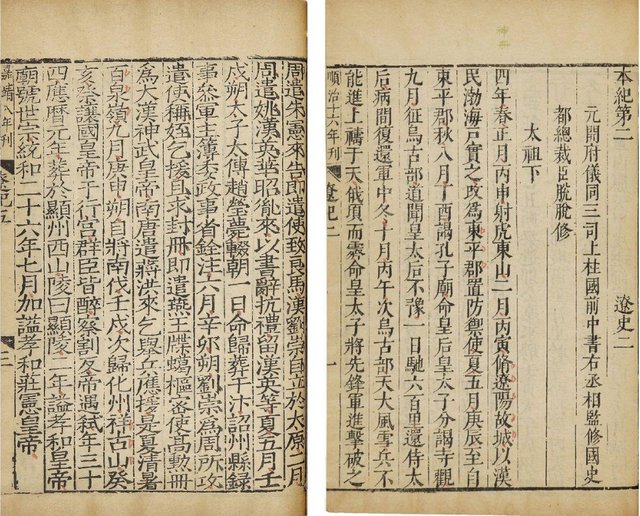 神冊
本紀第二　遼史二
元開府儀同三司上柱國前中書右丞相監修國史
都總裁臣脫脫修
太祖下
四年春正月丙申射虎東山二月丙寅脩遼陽故城以漢
民渤海戶實之改爲東平郡置防禦使夏五月庚辰至自
東平郡秋八月丁酉謁孔子廟命皇后皇太子分謁寺觀
九月征烏古部道聞皇太后不豫一日馳六百里還侍太
后病間復還軍中冬十月丙午次烏古部天大風雪兵不
能進上禱于天俄頃而霽命皇太子將先鋒軍進擊破之
順治十六年刊　遼記二　一
周遣朱憲來告即遣使致良馬漢劉崇自立於太原二月
周遣姚漢英華昭胤來以書辭抗禮留漢英等夏五月壬
戌朔太子太傅趙瑩薨輟朝一日命歸葬于汴詔州縣錄
事叅軍主簿委政事省銓注六月辛卯朔劉崇爲周所攻
遣使稱姪乞援且求封冊即遣燕王牒蠟樞密使高勳冊
爲大漢神武皇帝南唐遣蔣洪來乞舉兵應援是夏清暑
百泉嶺九月庚申朔自將南伐壬戌次歸化州祥古山癸
亥祭讓國皇帝于行宮群臣皆醉察割反帝遇弒年三十
四應曆元年葬於顯州西山陵曰顯陵二年謚孝和皇帝
廟號世宗統和二十六年七月加謚孝和莊憲皇帝
嘉靖八年刊　遼記五